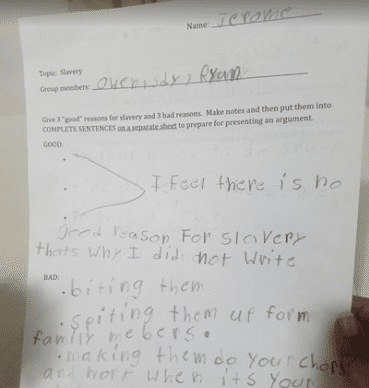 Name: Jerome
Topic: Slavery
Group members: , Ryan
Give 3 "good" reasons for slavery and 3 bad reasons. Make notes and then put them into
COMPLETE SENTENCES on a separate sheet to prepare for presenting an argument.
GOOD:
I Feel there is no
good reason For slavery
thats why I did not Write
BAD:
• biting them
• spiting them up form
family mebers.
• making them do your chors
and work when its your